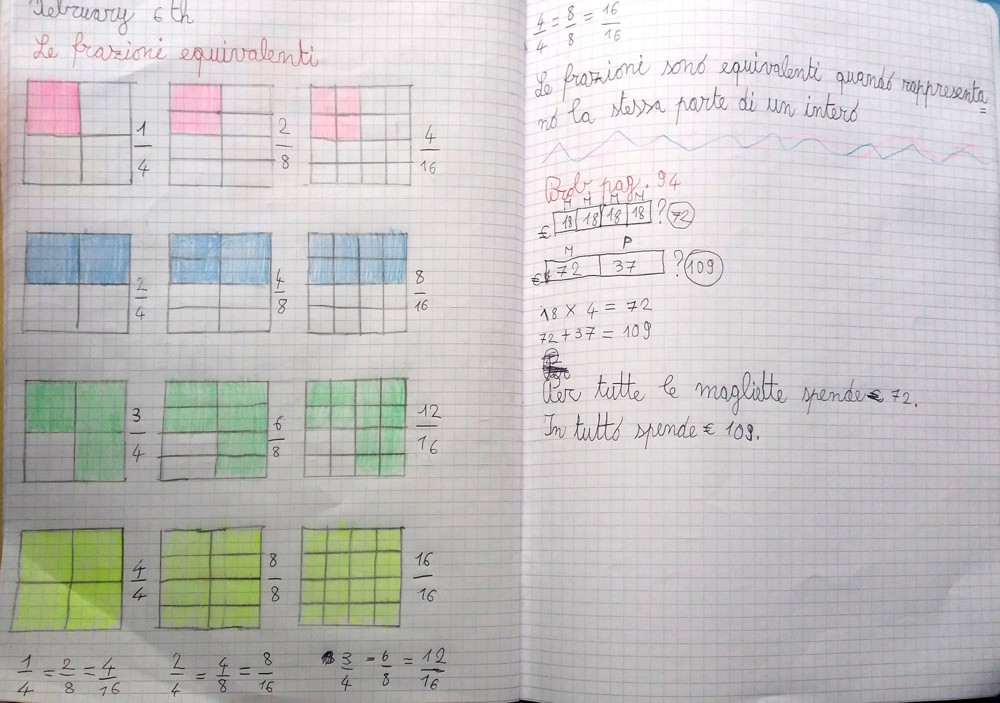 February 6th
Le frazioni equivalenti
1/4 2/8 4/16
2/4 4/8 8/16
3/4 6/8 12/16
4/4 8/8 16/16
1/4 = 2/8 = 4/16 2/4 = 4/8 = 8/16 3/4 = 6/8 = 12/16
4/4 = 8/8 = 16/16
Le frazioni sono equivalenti quando rappresenta=
no la stessa parte di un intero
Prob pag. 94
M M M M
€ 18 18 18 18 ? 72
M P
€ 72 37 ? 109
18 × 4 = 72
72 + 37 = 109
Per tutte le magliette spende € 72.
In tutto spende € 109.